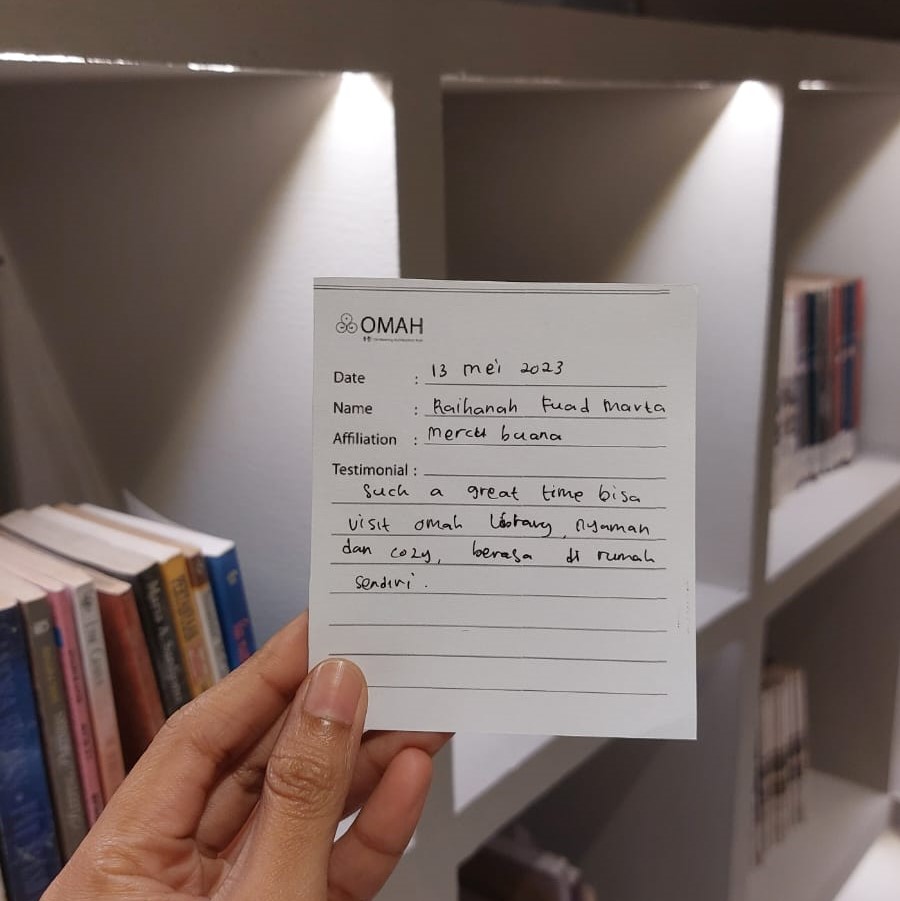 OMAH
Date : 13 mei 2023
Name : Raihanah Fuad Marta
Affiliation : Mercu buana
Testimonial :
Such a great time bisa
visit omah library, nyaman
dan cozy, berasa di rumah
sendiri.